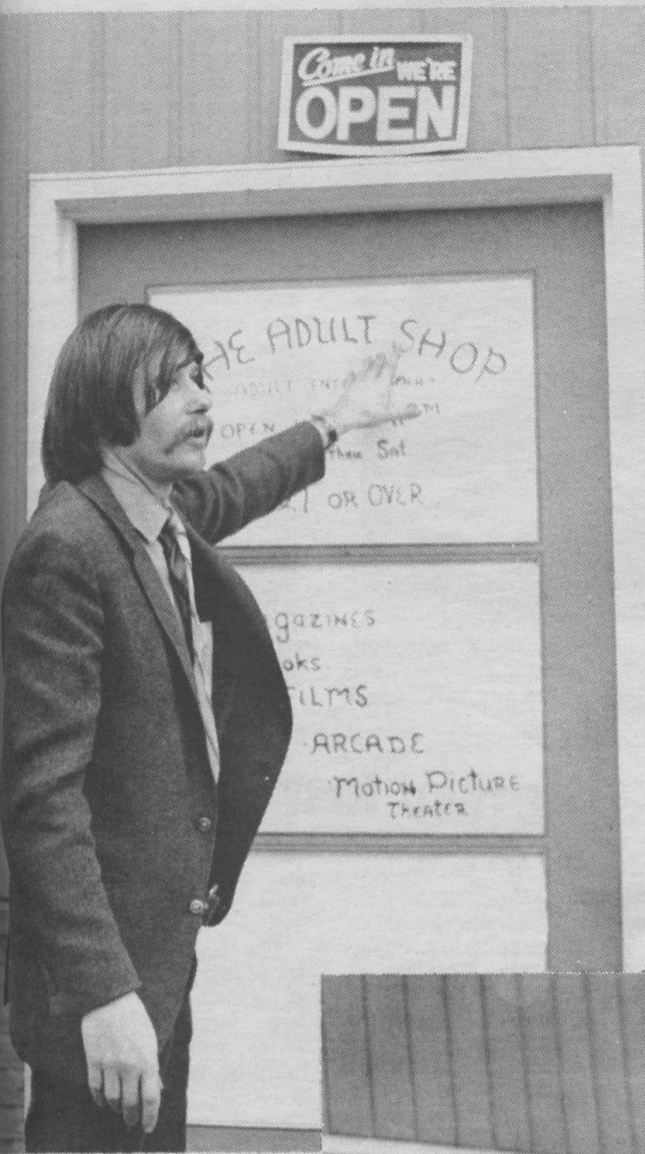 Come in WE'RE
OPEN
HE ADULT SHOP
ADULT
OPEN PM
thru Sat
21 OR OVER
gazines
oks
FILMS
ARCADE
Motion Picture
Theater